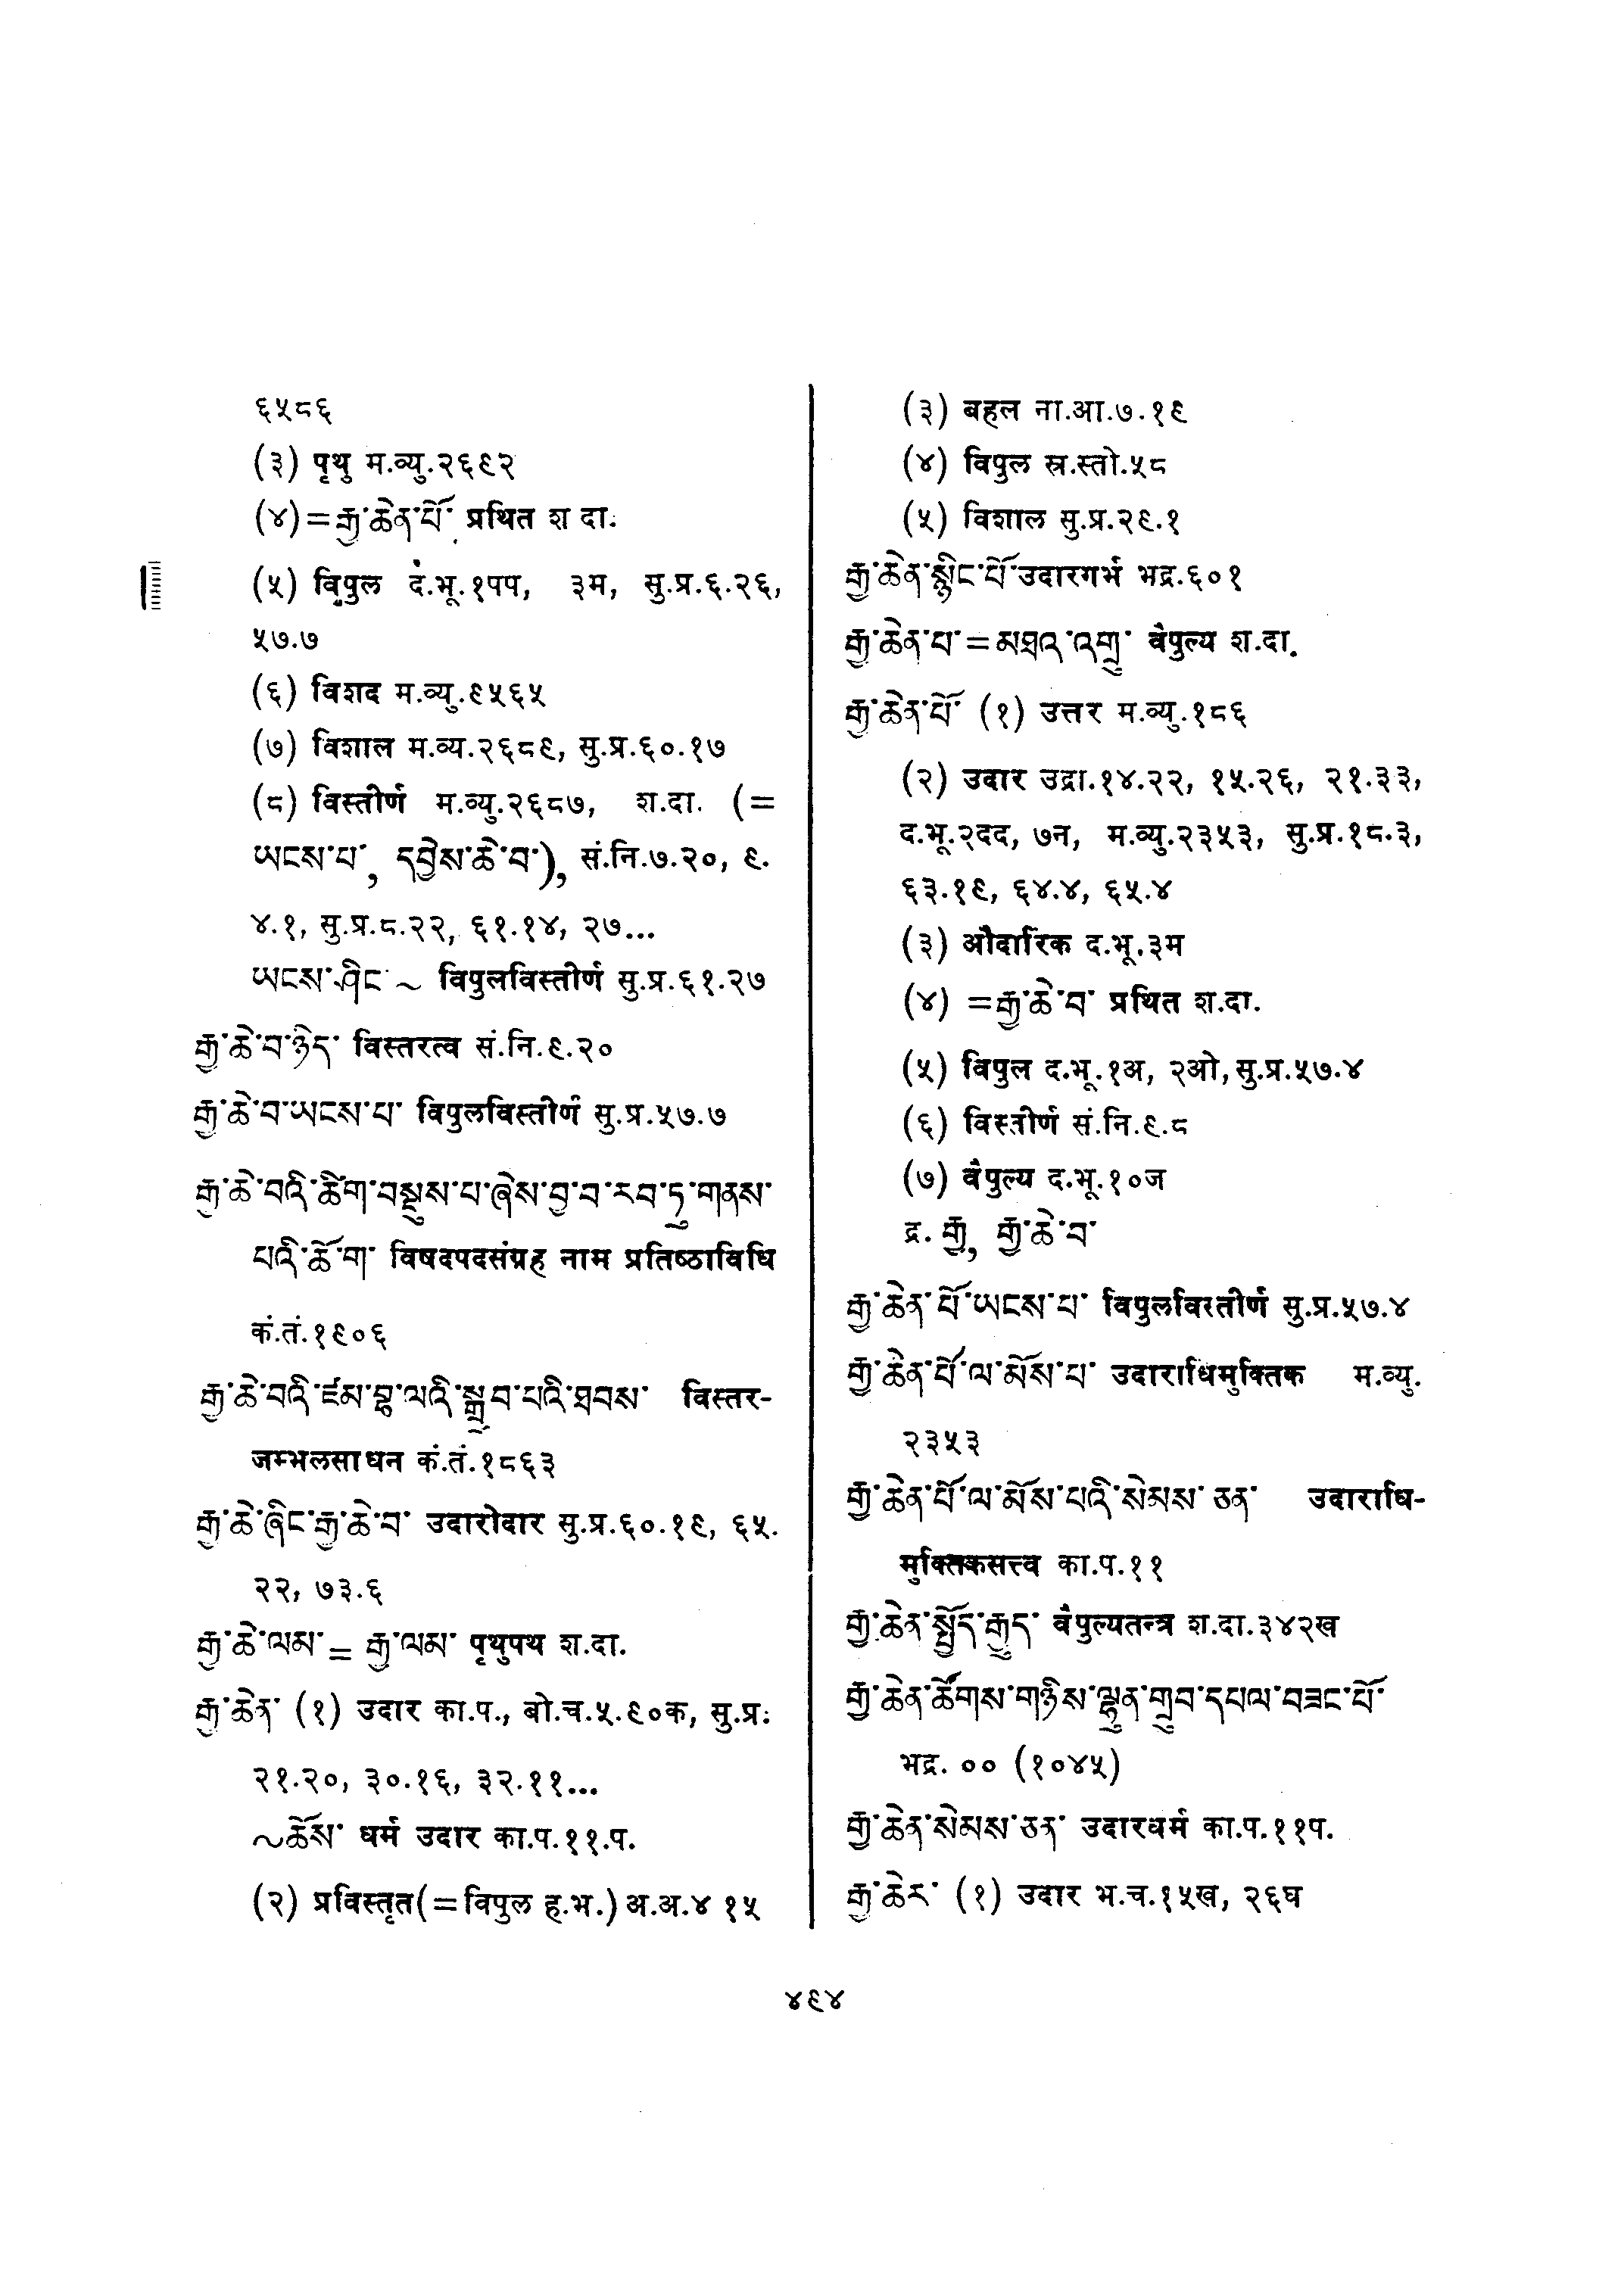 ६५८६
(३) पृथु म.व्यु.२६९२
(४)=རྒྱ་ཆེན་པོ་ प्रथित श दा.
(५) विपुल दं.भू.१पप, ३म, सु.प्र.६.२६,
५७.७
(६) विशद म.व्यु.९५६५
(७) विशाल म.व्य.२६८९, सु.प्र.६०.१७
(८) विस्तीर्ण म.व्यु.२६८७, श.दा. (=
ཡངས་པ་, དབྱེས་ཆེ་བ་), सं.नि.७.२०, ९.
४.१, सु.प्र.८.२२, ६१.१४, २७...
ཡངས་ཤིང་ ~ विपुलविस्तीर्ण सु.प्र.६१.२७
རྒྱ་ཆེ་བ་ཉིད་ विस्तरत्व सं.नि.९.२०
རྒྱ་ཆེ་བ་ཡངས་པ་ विपुलविस्तीर्ण सु.प्र.५७.७
རྒྱ་ཆེ་བའི་ཚིག་བསྡུས་པ་ཞེས་བྱ་བ་རབ་ཏུ་གནས་
པའི་ཆོ་ག་ विषदपदसंग्रह नाम प्रतिष्ठाविधि
कं.तं.१९०६
རྒྱ་ཆེ་བའི་ཛམ་བྷ་ལའི་སྒྲུབ་པའི་ཐབས་ विस्तर-
जम्भलसाधन कं.तं.१८६३
རྒྱ་ཆེ་ཞིང་རྒྱ་ཆེ་བ་ उदारोदार सु.प्र.६०.१९, ६५.
२२, ७३.६
རྒྱ་ཆེ་ལམ་ = རྒྱ་ལམ་ पृथुपथ श.दा.
རྒྱ་ཆེན་ (१) उदार का.प., बो.च.५.९०क, सु.प्र:
२१.२०, ३०.१६, ३२.११...
~ཆོས་ धर्म उदार का.प.११.प.
(२) प्रविस्तृत(=विपुल ह.भ.) अ.अ.४ १५
(३) बहल ना.आ.७.१९
(४) विपुल स्र.स्तो.५८
(५) विशाल सु.प्र.२९.१
རྒྱ་ཆེན་སྙིང་པོ་उदारगर्भ भद्र.६०१
རྒྱ་ཆེན་པ་=མཐའ་འགྲུ་ वैपुल्य श.दा.
རྒྱ་ཆེན་པོ་ (१) उत्तर म.व्यु.१८६
(२) उदार उद्रा.१४.२२, १५.२६, २१.३३,
द.भू.२दद, ७न, म.व्यु.२३५३, सु.प्र.१८.३,
६३.१९, ६४.४, ६५.४
(३) औदारिक द.भू.३म
(४) =རྒྱ་ཆེ་བ་ प्रथित श.दा.
(५) विपुल द.भू.१अ, २ओ, सु.प्र.५७.४
(६) विस्तीर्ण सं.नि.९.८
(७) वैपुल्य द.भू.१०ज
द्र. རྒྱ, རྒྱ་ཆེ་བ་
རྒྱ་ཆེན་པོ་ཡངས་པ་ विपुलविरतीर्ण सु.प्र.५७.४
རྒྱ་ཆེན་པོ་ལ་མོས་པ་ उदाराधिमुक्तिक म.व्यु.
२३५३
རྒྱ་ཆེན་པོ་ལ་མོས་པའི་སེམས་ཅན་ उदाराधि-
मुक्तिकसत्त्व का.प.११
རྒྱ་ཆེན་སྤྱོད་རྒྱུད་ वैपुल्यतन्त्र श.दा.३४२ख
རྒྱ་ཆེན་ཚོགས་གཉིས་ལྷུན་གྲུབ་དཔལ་བཟང་པོ་
भद्र. ०० (१०४५)
རྒྱ་ཆེན་སེམས་ཅན་ उदारधर्म का.प.११प.
རྒྱ་ཆེར་ (१) उदार भ.च.१५ख, २६घ
४९४